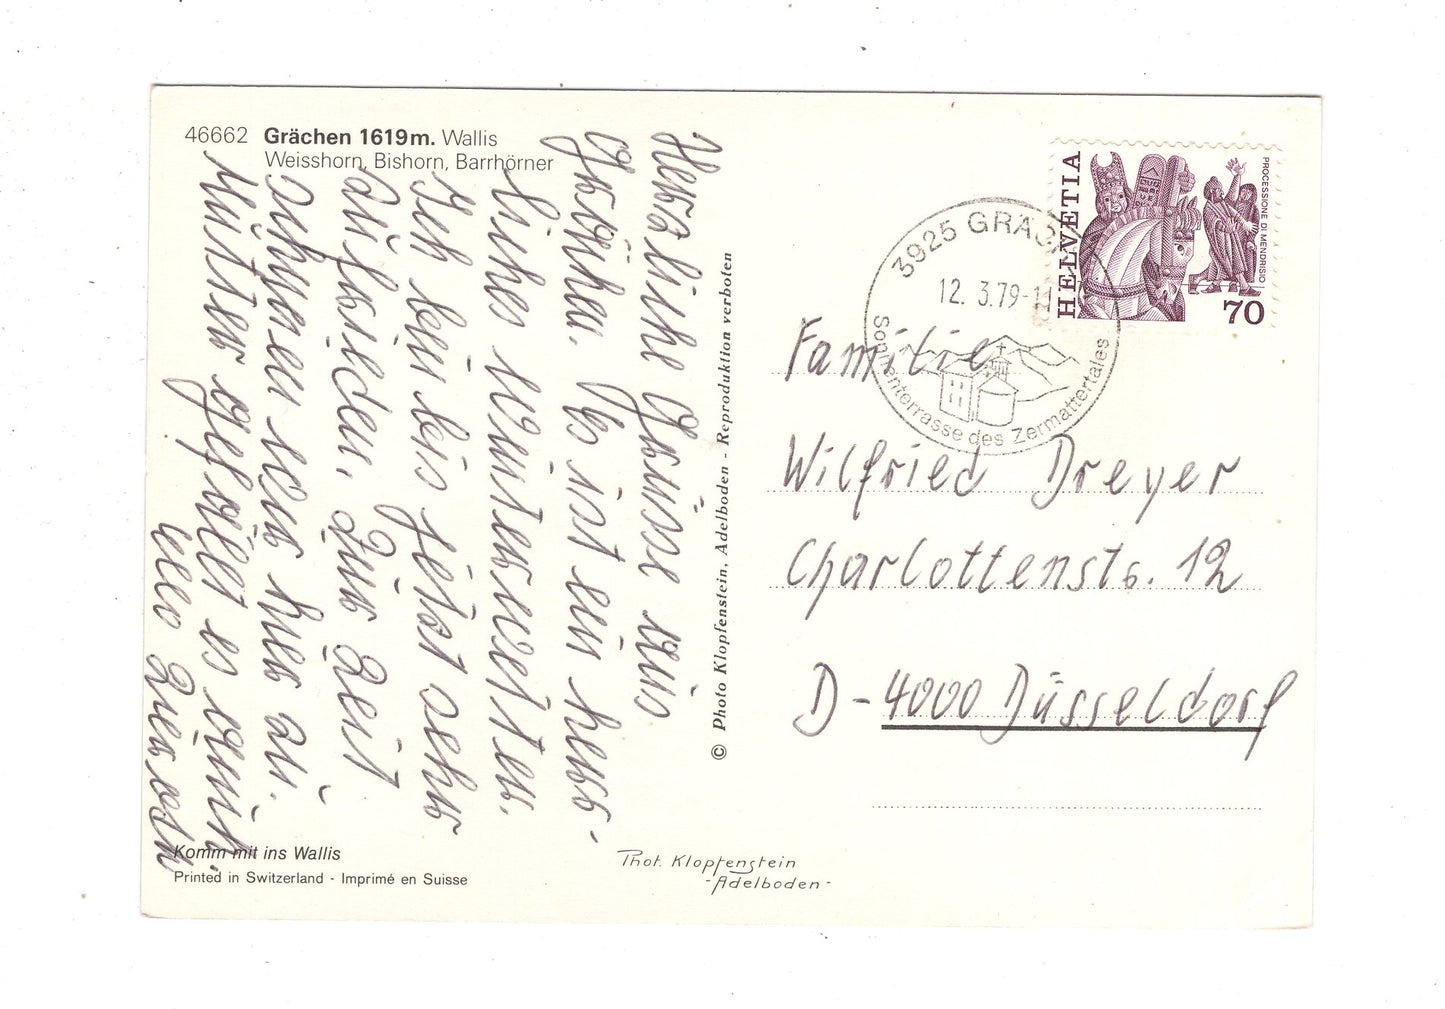 46662 Grächen 1619m. Wallis
Weisshorn, Bishorn, Barrhörner
Herzliche Grüsse aus
Grächen. Es ist ein herr-
liches Winterwetter.
Ich bin bis jetzt sehr
zufrieden. Zur Zeit
schneien wir hier an.
Mutter gefällt es auch
© Photo Klopfenstein, Adelboden - Reproduktion verboten
Komm mit ins Wallis
Printed in Switzerland - Imprimé en Suisse
Phot. Klopfenstein
-Adelboden-
HELVETIA
PROCESSIONE DI MENDRISIO
70
3925 GRÄC
12. 3.79-11
Sonnenterrasse des Zermattertales
Familie
Wilfried Dreyer
Charlottenstr. 12
D-4000 Düsseldorf